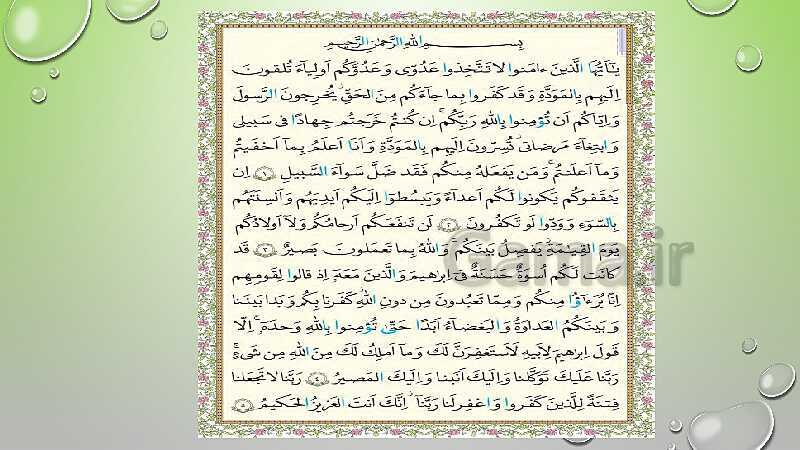 بِسْمِ اللهِ الرَّحْمٰنِ الرَّحيمِ
يٰٓاَيُّهَا الَّذينَ ءامَنوا لا تَتَّخِذوا عَدُوّى وَ عَدُوَّكُم اَولِيآءَ تُلقونَ
اِلَيهِم بِالمَوَدَّةِ وَ قَد كَفَروا بِما جآءَكُم مِنَ الحَقِّ يُخرِجونَ الرَّسولَ
وَ اِيّاكُم اَن تُؤمِنوا بِاللهِ رَبِّكُم اِن كُنتُم خَرَجتُم جِهادًا فى سَبيلى
وَ ابتِغآءَ مَرضاتى تُسِرّونَ اِلَيهِم بِالمَوَدَّةِ وَ اَنَا اَعلَمُ بِمآ اَخفَيتُم
وَ مآ اَعلَنتُم وَ مَن يَفعَلهُ مِنكُم فَقَد ضَلَّ سَوآءَ السَّبيلِ ﴿١﴾ اِن
يَثقَفوكُم يَكونوا لَكُم اَعدآءً وَ يَبسُطوٓا اِلَيكُم اَيدِيَهُم وَ اَلسِنَتَهُم
بِالسّوٓءِ وَ وَدّوا لَو تَكفُرونَ ﴿٢﴾ لَن تَنفَعَكُم اَرحامُكُم وَ لآ اَولادُكُم
يَومَ القِيٰمَةِ يَفصِلُ بَينَكُم وَ اللهُ بِما تَعمَلونَ بَصيرٌ ﴿٣﴾ قَد
كانَت لَكُم اُسوَةٌ حَسَنَةٌ فى اِبرٰهيمَ وَ الَّذينَ مَعَهٗٓ اِذ قالوا لِقَومِهِم
اِنّا بُرَءٰٓؤُا مِنكُم وَ مِمّا تَعبُدونَ مِن دونِ اللهِ كَفَرنا بِكُم وَ بَدا بَينَنا
وَ بَينَكُمُ العَداوَةُ وَ البَغضآءُ اَبَدًا حَتّىٰ تُؤمِنوا بِاللهِ وَحدَهٗٓ اِلّا
قَولَ اِبرٰهيمَ لِاَبيهِ لَاَستَغفِرَنَّ لَكَ وَ مآ اَملِكُ لَكَ مِنَ اللهِ مِن شَىءٍ
رَبَّنا عَلَيكَ تَوَكَّلنا وَ اِلَيكَ اَنَبنا وَ اِلَيكَ المَصيرُ ﴿٤﴾ رَبَّنا لا تَجعَلنا
فِتنَةً لِلَّذينَ كَفَروا وَ اغفِر لَنا رَبَّنآ اِنَّكَ اَنتَ العَزيزُ الحَكيمُ ﴿٥﴾
Gama.ir